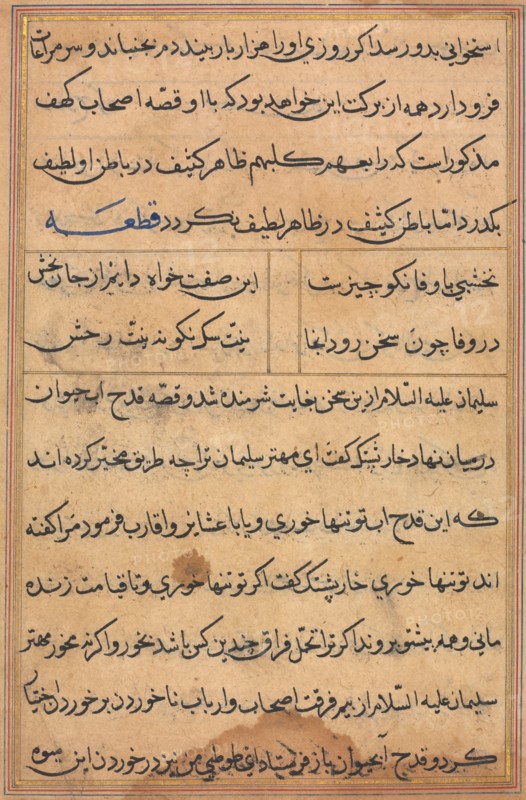 استخوانی بدو رسد اکر روزی او را هزار بار بیند دم نجنباند و سر مراعات
فرو دارد همه از برکت این خواهد بود که با او قصّه اصحاب کهف
مذکور است که رابعهم کلبهم ظاهر کثیف در باطن او لطیف
بکدرد امّا باطن کثیف در ظاهر لطیف نکردد قطعه
نخشبی با وفا نکو چیزیست این صفت خواه دایم از جان بخش
در وفا چون سخن رود اینجا نیت سک نکو نه نیت رخش
سلیمان علیه السّلام ازین سخن بغایت شرمنده شد و قصّه قدح اب حیوان
درمیان نهاد خارپشتک کفت ای مهتر سلیمان ترا چه طریق مخیّر کرده اند
که این قدح اب تو تنها خوری و یا با عشایر و اقارب فرمود مرا کفته
اند تو تنها خوری خارپشتک کفت اکر تو تنها خوری و تا قیامت زنده
مانی و همه پیش تو بروند اکر ترا تحمّل فراق چندین کس باشد بخور و اکر نه مخور مهتر
سلیمان علیه السّلام از بیم فرقت اصحاب و ارباب ناخوردن بر خوردن اختیار
کرد و قدح آبحیوان باز فرستاد ای طوطی من نیز در خوردن این میوه